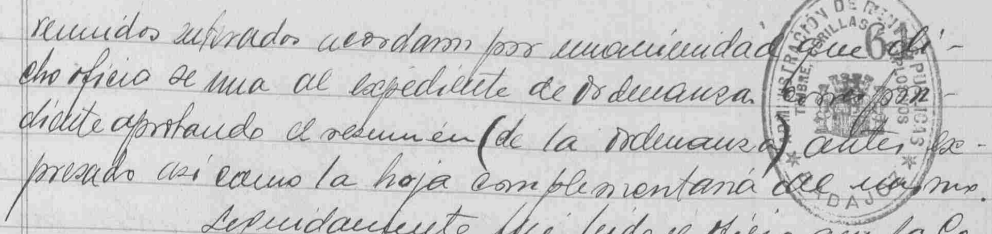 reunidos enterados acordaron por unanimidad que di-
cho oficio se una al expediente de ordenanza correspon-
diente aprobando el resumen (de la ordenanza) antes ex-
presado así como la hoja complementaria del mismo.
Seguidamente fué leido el oficio que la Co
ADMINISTRACIÓN DE RENTAS PUBLICAS
TIMBRE, CERILLAS
EXPLOSIVOS
* BADAJOZ *
61